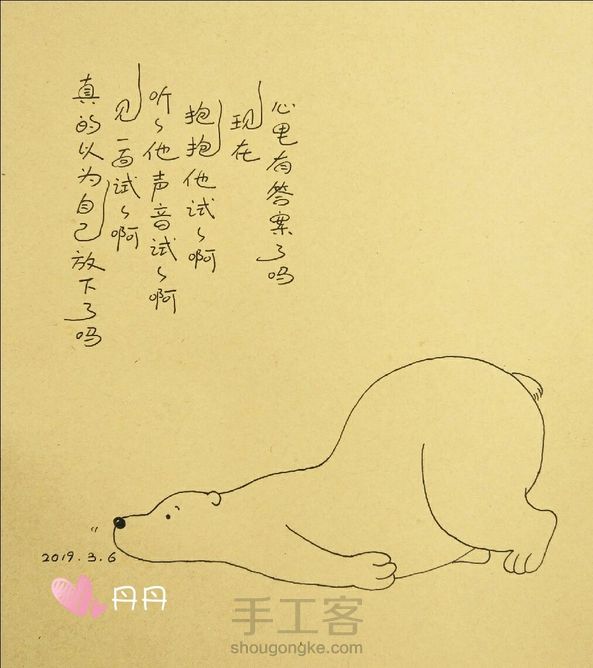 真的以为自己放下了吗
见一面试々啊
听々他声音试々啊
抱抱他试々啊
现在
心里有答案了吗
2019.3.6
丹丹
手工客
shougongke.com